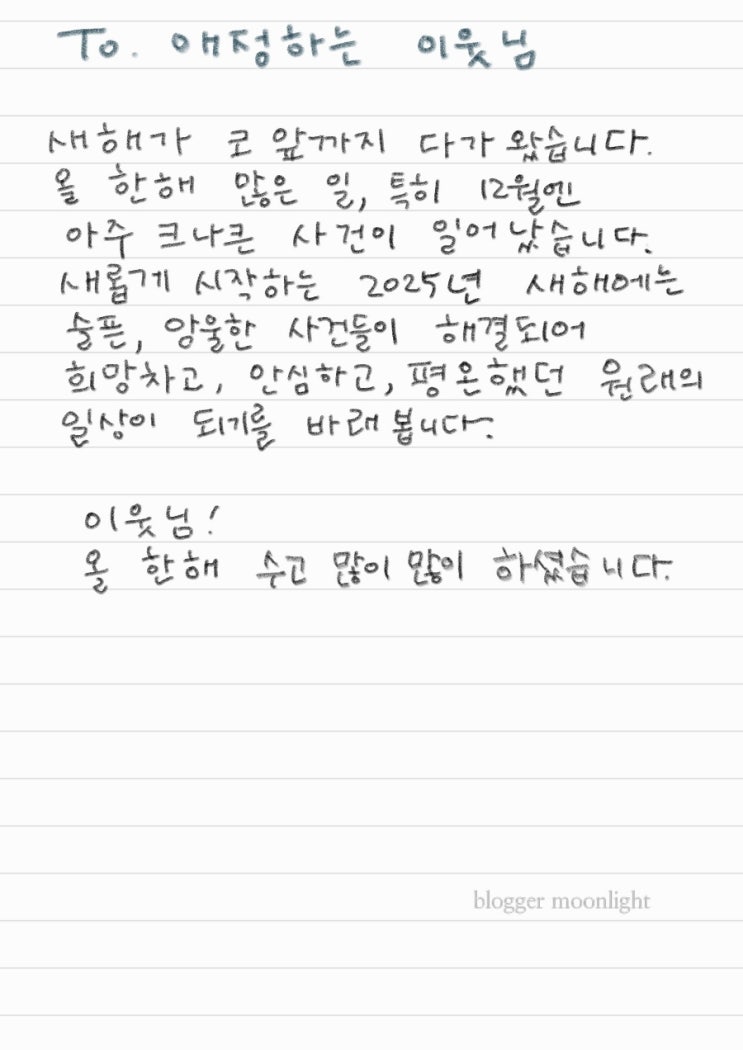 To. 애정하는 이웃님
새해가 코 앞까지 다가 왔습니다.
올 한해 많은 일, 특히 12월엔
아주 크나큰 사건이 일어 났습니다.
새롭게 시작하는 2025년 새해에는
슬픈, 암울한 사건들이 해결되어
희망차고, 안심하고, 평온했던 원래의
일상이 되기를 바래 봅니다.
이웃님!
올 한해 수고 많이 많이 하셨습니다.
blogger moonlight